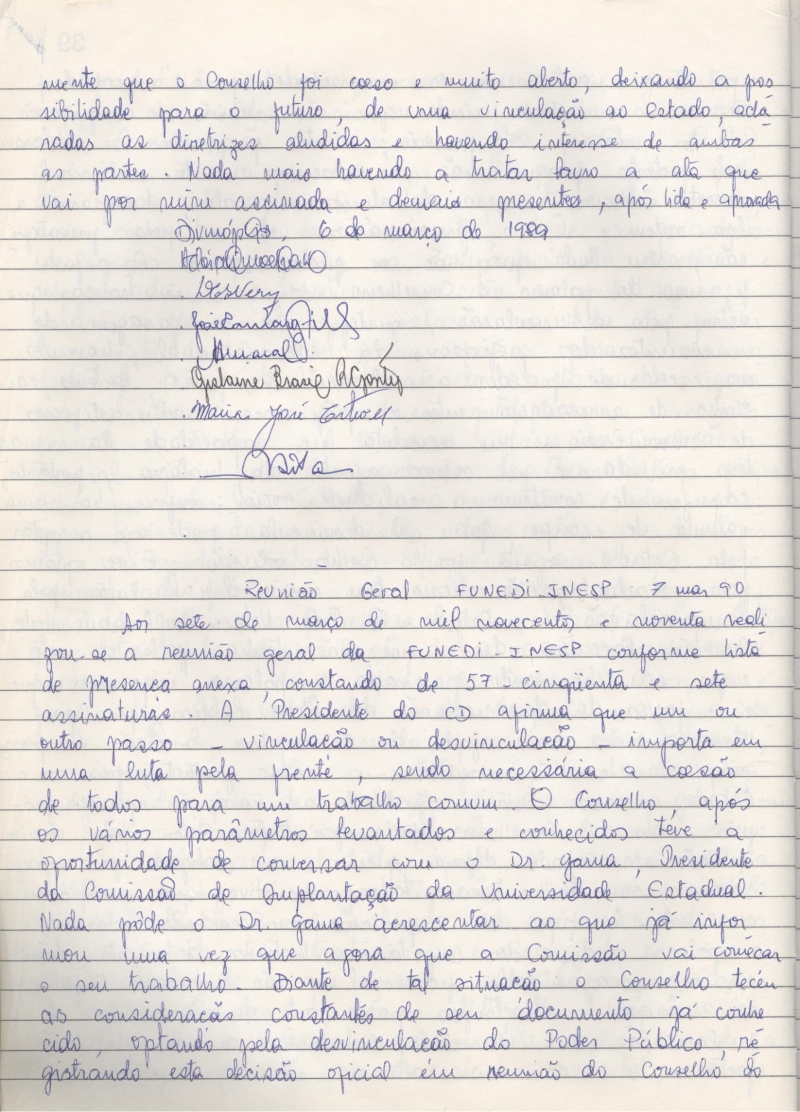 mente que o Conselho foi coeso e muito aberto, deixando a pos
sibilidade para o futuro, de uma vinculação ao Estado, acla
radas as diretrizes aludidas e havendo interesse de ambas
as partes. Nada mais havendo a tratar lavro a ata que
vai por mim assinada e demais presentes, após lida e aprovada
Divinópolis, 6 de março de 1989
Gislaine
Maria José
Reunião Geral FUNEDI-INESP 7 mar 90
Aos sete de março de mil novecentos e noventa reali
zou-se a reunião geral da FUNEDI-INESP conforme lista
de presença anexa, constando de 57 - cinqüenta e sete
assinaturas. A Presidente do CD afirma que um ou
outro passo - vinculação ou desvinculação - importa em
uma luta pela frente, sendo necessária a coesão
de todos para um trabalho comum. O Conselho, após
os vários parâmetros levantados e conhecidos teve a
oportunidade de conversar com o Dr Gama, Presidente
da Comissão de Implantação da Universidade Estadual.
Nada pôde o Dr. Gama acrescentar ao que já infor
mou uma vez que agora que a Comissão vai começar
o seu trabalho. Diante de tal situação o Conselho teceu
as considerações constantes de seu documento já conhe
cido, optando pela desvinculação do Poder Público, re
gistrando esta decisão oficial em reunião do Conselho do